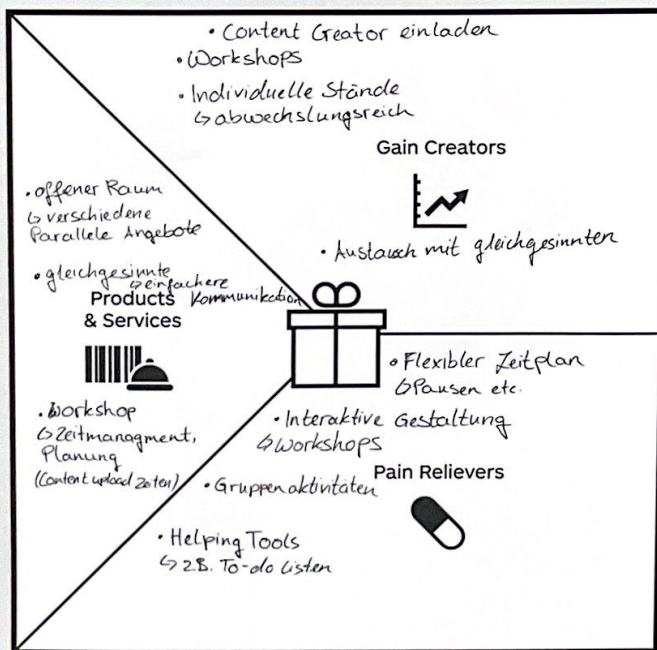 • Content Creator einladen
• Workshops
• Individuelle Stände
↳ abwechslungsreich
Gain Creators
• Austausch mit gleichgesinnten
• offener Raum
↳ verschiedene
Parallele Angebote
• gleichgesinnte
↳ einfachere
Kommunikation
Products
& Services
• Workshop
↳ Zeitmanagment,
Planung
(Content upload Zeiten)
• Flexibler Zeitplan
↳ Pausen etc.
• Interaktive Gestaltung
↳ Workshops
Pain Relievers
• Gruppenaktivitäten
• Helping Tools
↳ z.B. To-do Listen